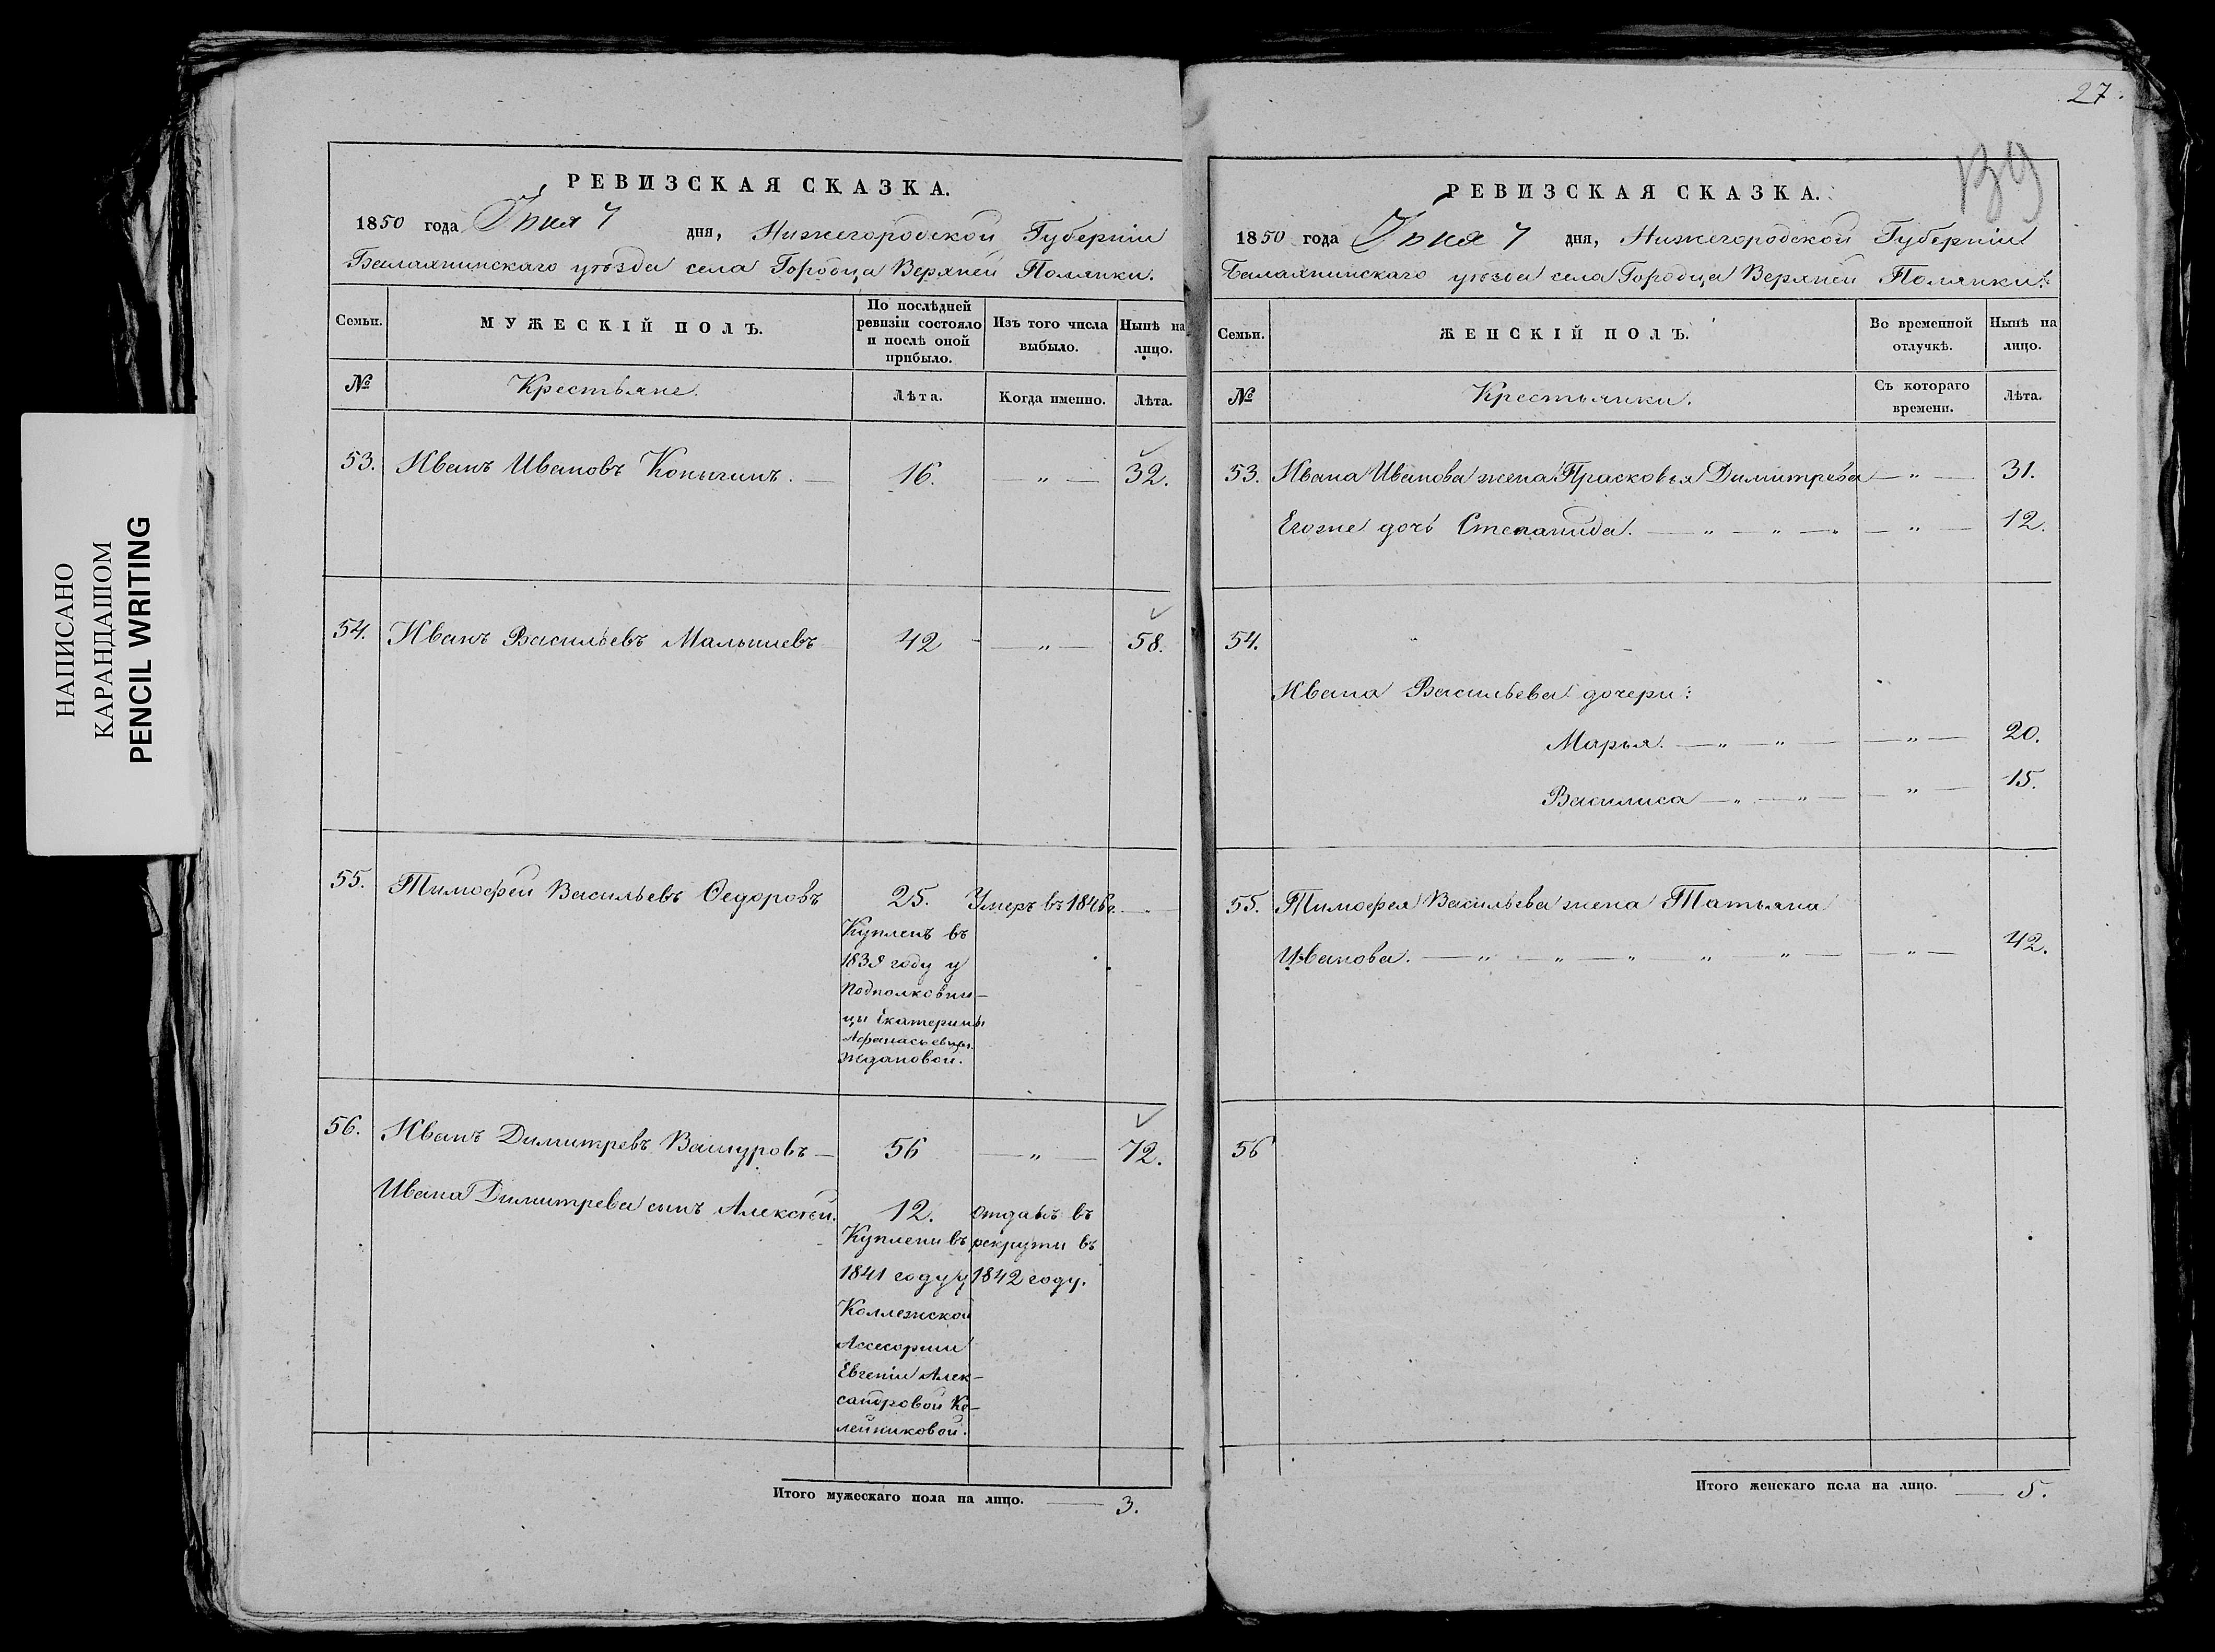 НАПИСАНО
КАРАНДАШОМ
PENCIL WRITING
РЕВИЗСКАЯ СКАЗКА.
1850 года Іюня 7 дня, Нижегородской Губерніи
Балахнинскаго уѣзда села Городца Верхней Полянки.
Семьи.
МУЖЕСКІЙ ПОЛЪ.
По послѣдней
ревизіи состояло
и послѣ оной
прибыло.
Изъ того числа
выбыло.
Нынѣ на
лицо.
№
Крестьяне.
Лѣта.
Когда именно.
Лѣта.
53. Иванъ Ивановъ Конычинъ. — 16. — „ — 32.
54. Иванъ Васильевъ Малышевъ 42 — „ — 58.
55. Тимофей Васильевъ Ѳедоровъ 25. Умеръ въ 1846 г. —
Купленъ въ
1839 году у
Подполковни-
цы Екатерины
Афанасьевны
Ждановой.
56. Иванъ Димитревъ Вашуровъ — 56 — „ — 72.
Ивана Димитрева сынъ Алексѣй. 12. отданъ въ
Куплены въ рекруты въ
1841 году у 1842 году.
Коллежской
Ассесорши
Евгеніи Алек-
сандровой Ке-
лейниковой.
Итого мужескаго пола на лицо. — 3.
27.
139
РЕВИЗСКАЯ СКАЗКА.
1850 года Іюня 7 дня, Нижегородской Губерніи
Балахнинскаго уѣзда села Городца Верхней Полянки.
Семьи.
ЖЕНСКІЙ ПОЛЪ.
Во временной
отлучкѣ.
Нынѣ на
лицо.
№
Крестьянки.
Съ котораго
времени.
Лѣта.
53. Ивана Иванова жена Прасковья Димитрева — „ — 31.
Егоже дочь Степанида. — „ — „ — „ — „ — 12.
54.
Ивана Васильева дочери:
Марья. — „ — „ — — „ — 20.
Василиса — „ — „ — — „ — 15.
55. Тимофея Васильева жена Татьяна
Иванова. — „ — „ — „ „ „ — — „ — 42.
56
Итого женскаго пола на лицо. — 5.